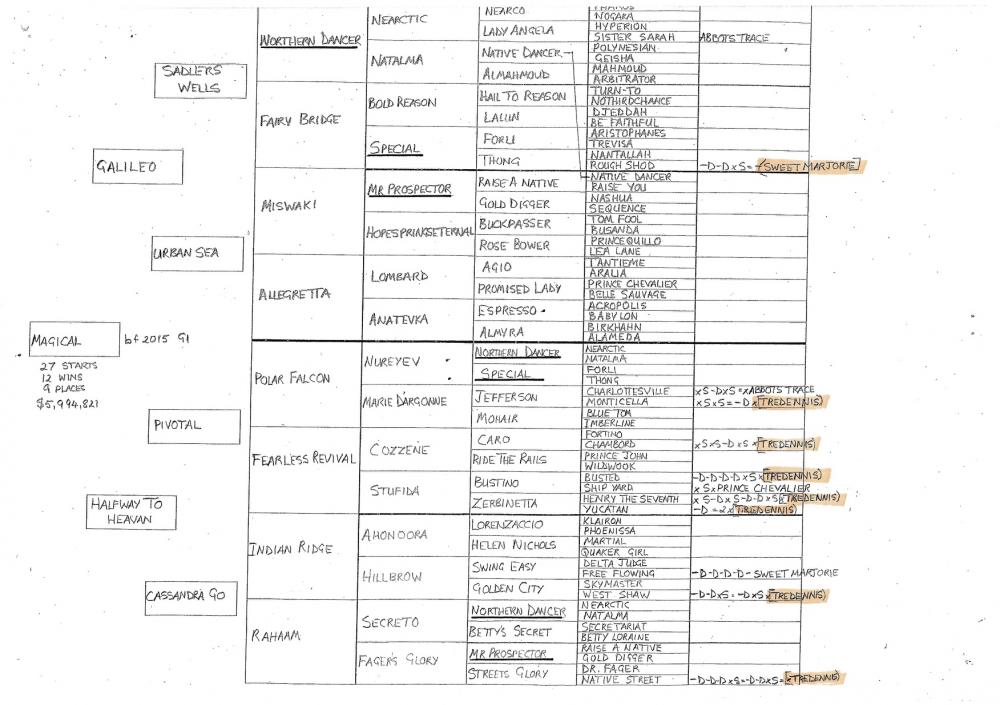 NEARCO
NOGARA
NEARCTIC
HYPERION
LADY ANGELA
SISTER SARAH ABBOTS TRACE
NORTHERN DANCER
POLYNESIAN
NATIVE DANCER
GEISHA
NATALMA
MAHMOUD
ALMAHMOUD
ARBITRATOR
SADLERS
WELLS
TURN-TO
HAIL TO REASON
NOTHIRDCHANCE
BOLD REASON
DJEDDAH
LALUN
BE FAITHFUL
FAIRY BRIDGE
ARISTOPHANES
FORLI
TREVISA
SPECIAL
NANTALLAH
THONG
ROUGH SHOD -D-DxS=-(SWEET MARJORIE)
GALILEO
NATIVE DANCER
MR PROSPECTOR
RAISE A NATIVE
RAISE YOU
NASHUA
GOLD DIGGER
SEQUENCE
MISWAKI
TOM FOOL
BUCKPASSER
BUSANDA
HOPESPRINGSETERNAL
PRINCEQUILLO
ROSE BOWER
LEA LANE
URBAN SEA
TANTIEME
AGIO
ARALIA
LOMBARD
PRINCE CHEVALIER
PROMISED LADY
BELLE SAUVAGE
ALLEGRETTA
ACROPOLIS
ESPRESSO
BABYLON
ANATEVKA
BIRKHAHN
ALMYRA
ALAMEDA
MAGICAL bf 2015 G1
27 STARTS
12 WINS
9 PLACES
$5,994,821
NEARCTIC
NORTHERN DANCER
NATALMA
NUREYEV
FORLI
SPECIAL
THONG
POLAR FALCON
CHARLOTTESVILLE xS-DxS=xABBOTS TRACE
JEFFERSON
MONTICELLA xSxS=-Dx(TREDENNIS)
MARIE D'ARGONNE
BLUE TOM
MOHAIR
IMBERLINE
PIVOTAL
FORTINO
CARO
CHAMBORD xSxS-DxSx(TREDENNIS)
COZZENE
PRINCE JOHN
RIDE THE RAILS
WILDWOOK
FEARLESS REVIVAL
BUSTED -D-D-D-DxSx(TREDENNIS)
BUSTINO
SHIP YARD xSxPRINCE CHEVALIER
STUFIDA
HENRY THE SEVENTH xS-DxS-D-DxS(xTREDENNIS)
ZERBINETTA
YUCATAN -D=2x(TREDENNIS)
HALFWAY TO
HEAVAN
KLAIRON
LORENZACCIO
PHOENISSA
AHONOORA
MARTIAL
HELEN NICHOLS
QUAKER GIRL
INDIAN RIDGE
DELTA JUDGE
SWING EASY
FREE FLOWING -D-D-D-D-SWEET MARJORIE
HILLBROW
SKYMASTER
GOLDEN CITY
WEST SHAW -D-DxS=-DxS(xTREDENNIS)
CASSANDRA GO
NEARCTIC
NORTHERN DANCER
NATALMA
SECRETO
SECRETARIAT
BETTY'S SECRET
BETTY LORAINE
RAHAAM
RAISE A NATIVE
MR PROSPECTOR
GOLD DIGGER
FAGER'S GLORY
DR. FAGER
STREETS GLORY
NATIVE STREET -D-DxS=-D-DxS=(xTREDENNIS)